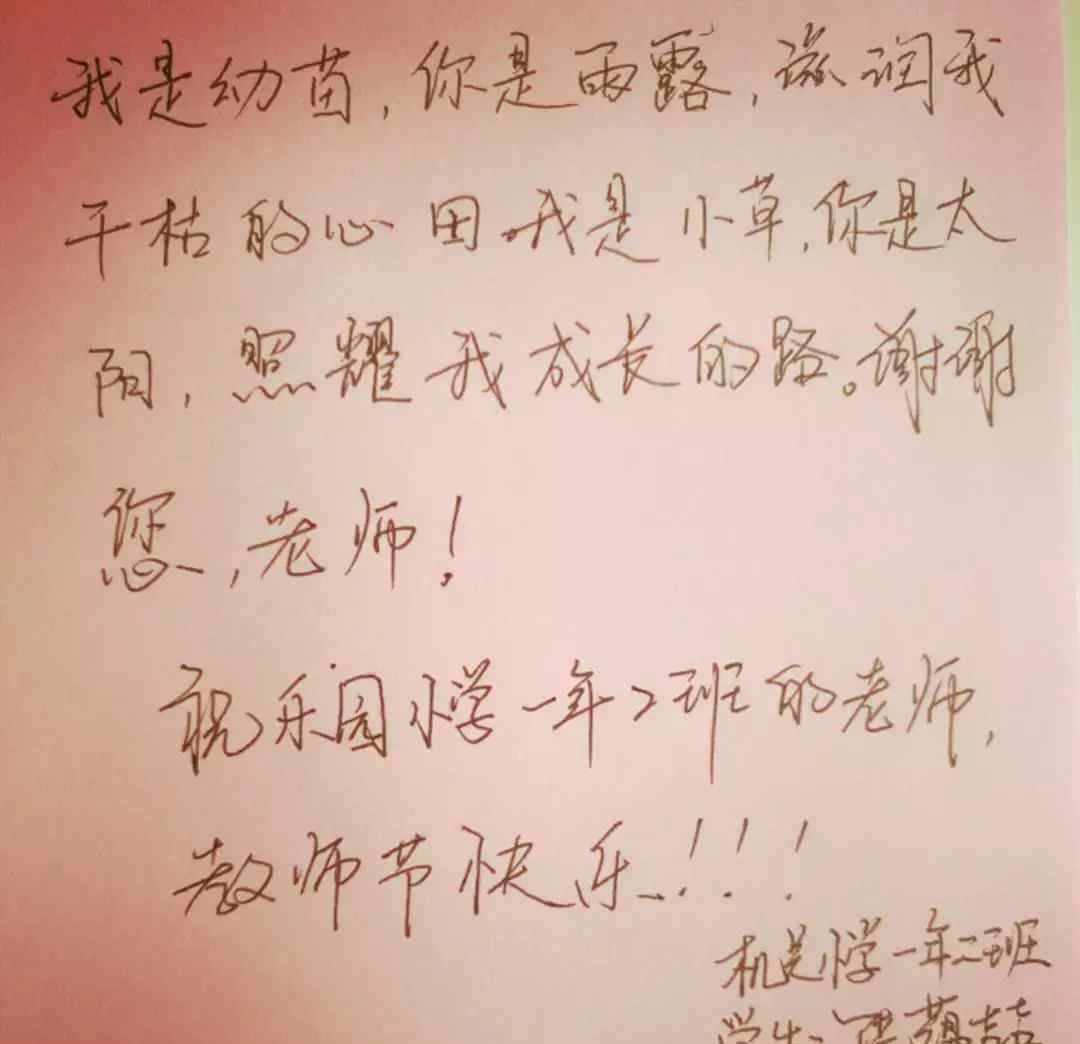 我是幼苗,你是雨露,滋润我
干枯的心田。我是小草,你是太
阳,照耀我成长的路。谢谢
您,老师!
祝乐园小学一年2班的老师,
教师节快乐!!!
机关小学一年二班
学生: